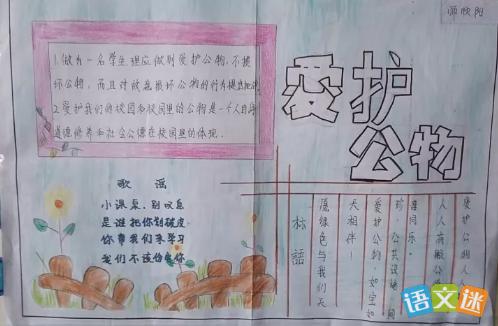 爱护
公物
1.做为一名学生,理应做到爱护公物,不损
坏公物,而且对故意损坏公物的行为提出批评
2.爱护我们的校园和校园里的公物是一个人自身
道德修养和社会公德在校园里的体现.
歌谣
小课桌,别叹息
是谁把你划破皮
你帮我们来学习
我们不该伤害你
标语
爱护公物人
人人 公
喜同乐.
珍.公共设施
爱护公物.如宝如
天相伴!
愿绿色与我们天
语文迷